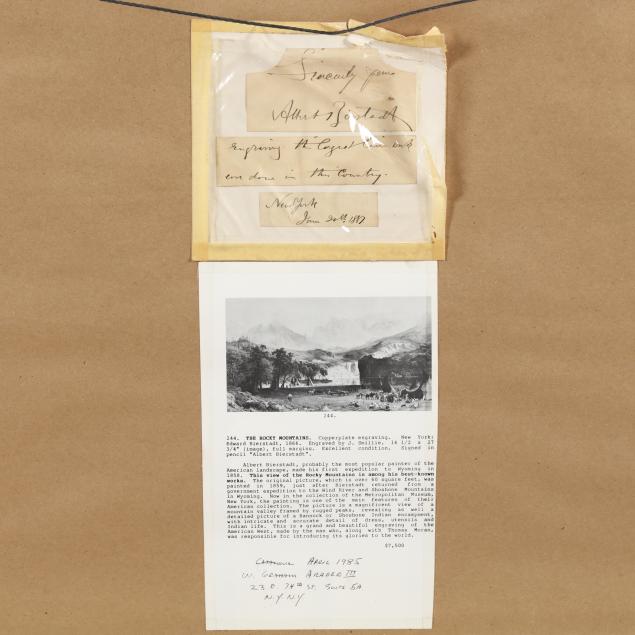 Sincerely yours
Albert Bierstadt
Engraving the largest
ever done in this Country.
New York
Jan 20th 1887
244.
244. THE ROCKY MOUNTAINS. Copperplate engraving. New York:
Edward Bierstadt, 1866. Engraved by J. Smillie, 16 1/2 x 27
3/4" (image), full margins. Excellent condition. Signed in
pencil "Albert Bierstadt".
Albert Bierstadt, probably the most popular painter of the
American landscape, made his first expedition to Wyoming in
1858. This view of the Rocky Mountains is among his best-known
works. The original picture, which is over 60 square feet, was
painted in 1859, just after Bierstadt returned from a
government expedition to the Wind River and Shoshone Mountains
in Wyoming. Now in the collection of the Metropolitan Museum,
New York, the painting is one of the main features of their
American collection. The picture is a magnificent view of a
mountain valley framed by rugged peaks, revealing as well a
detailed picture of a Bannock or Shoshone Indian encampment,
with intricate and accurate detail of dress, utensils and
Indian life. This is a grand and beautiful engraving of the
American West, made by the man who, along with Thomas Moran,
was responsible for introducing its glories to the world.
$7,500
April 1985
W. Graham Arader III
23 E. 74th St. Suite 5A
N.Y. N.Y